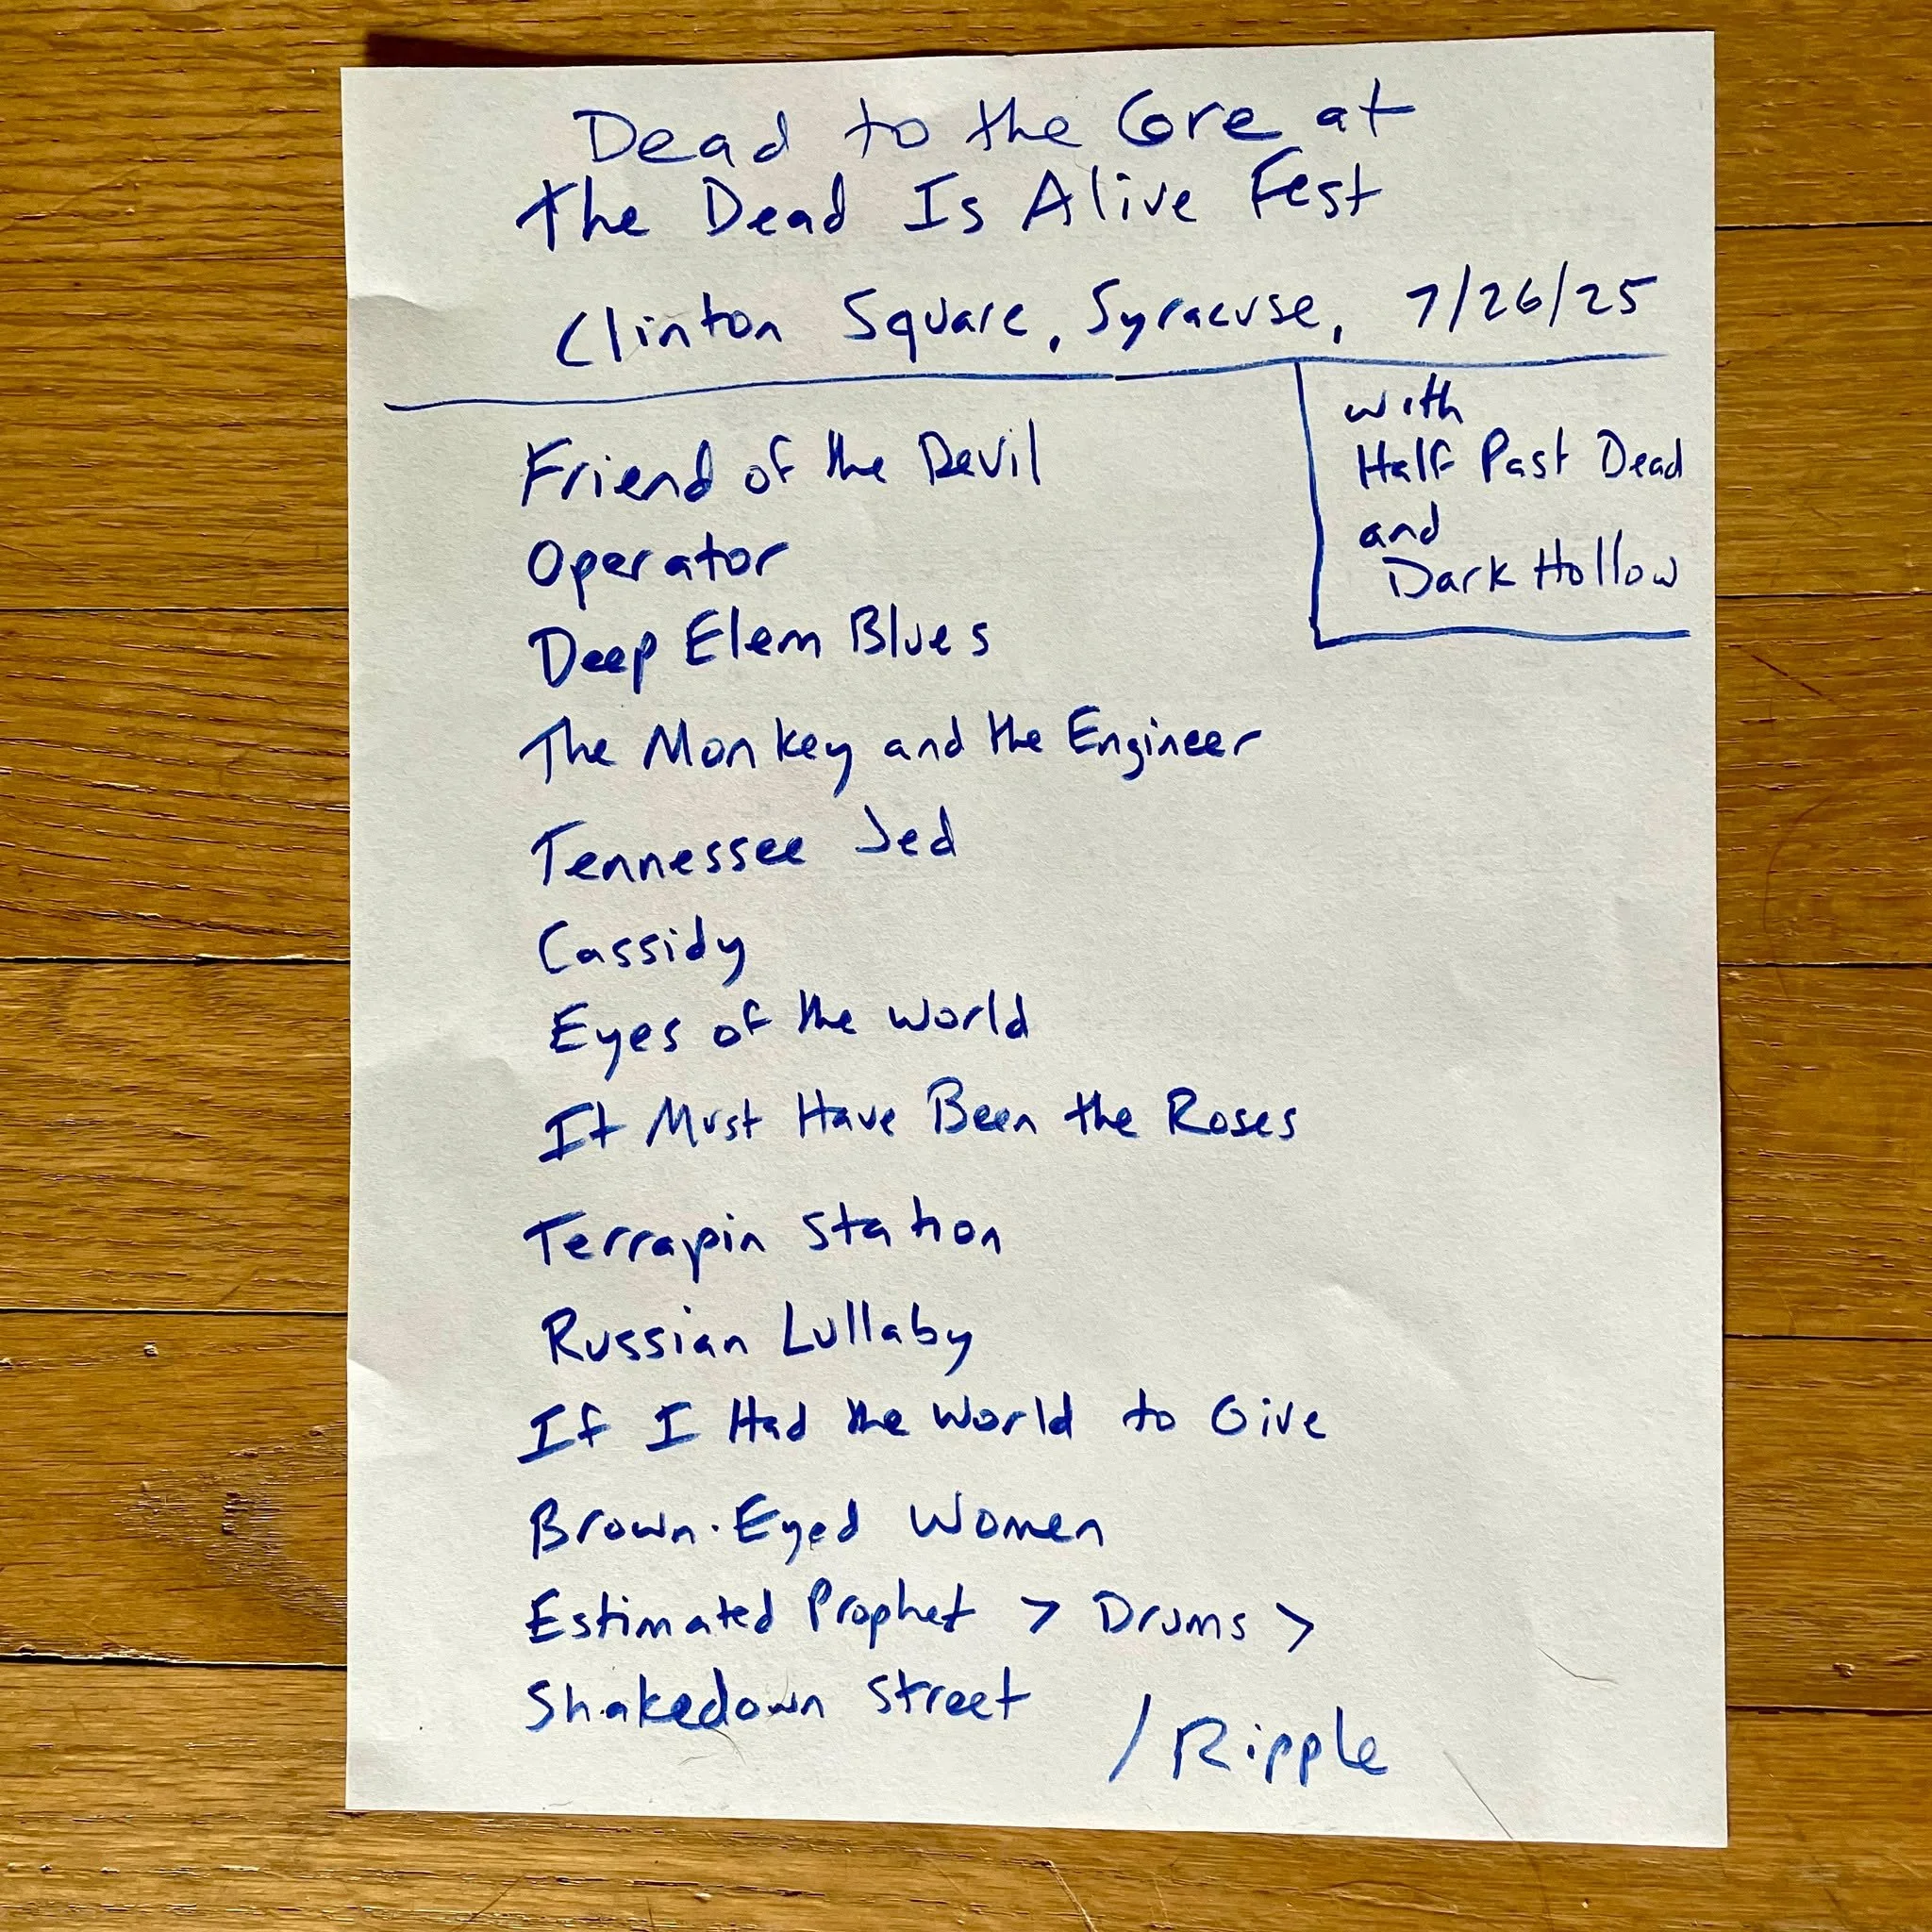 Dead to the Core at
The Dead Is Alive Fest
Clinton Square, Syracuse, 7/26/25
with
Half Past Dead
and
Dark Hollow
Friend of the Devil
Operator
Deep Elem Blues
The Monkey and the Engineer
Tennessee Jed
Cassidy
Eyes of the World
It Must Have Been the Roses
Terrapin Station
Russian Lullaby
If I Had the World to Give
Brown-Eyed Women
Estimated Prophet > Drums >
Shakedown Street / Ripple